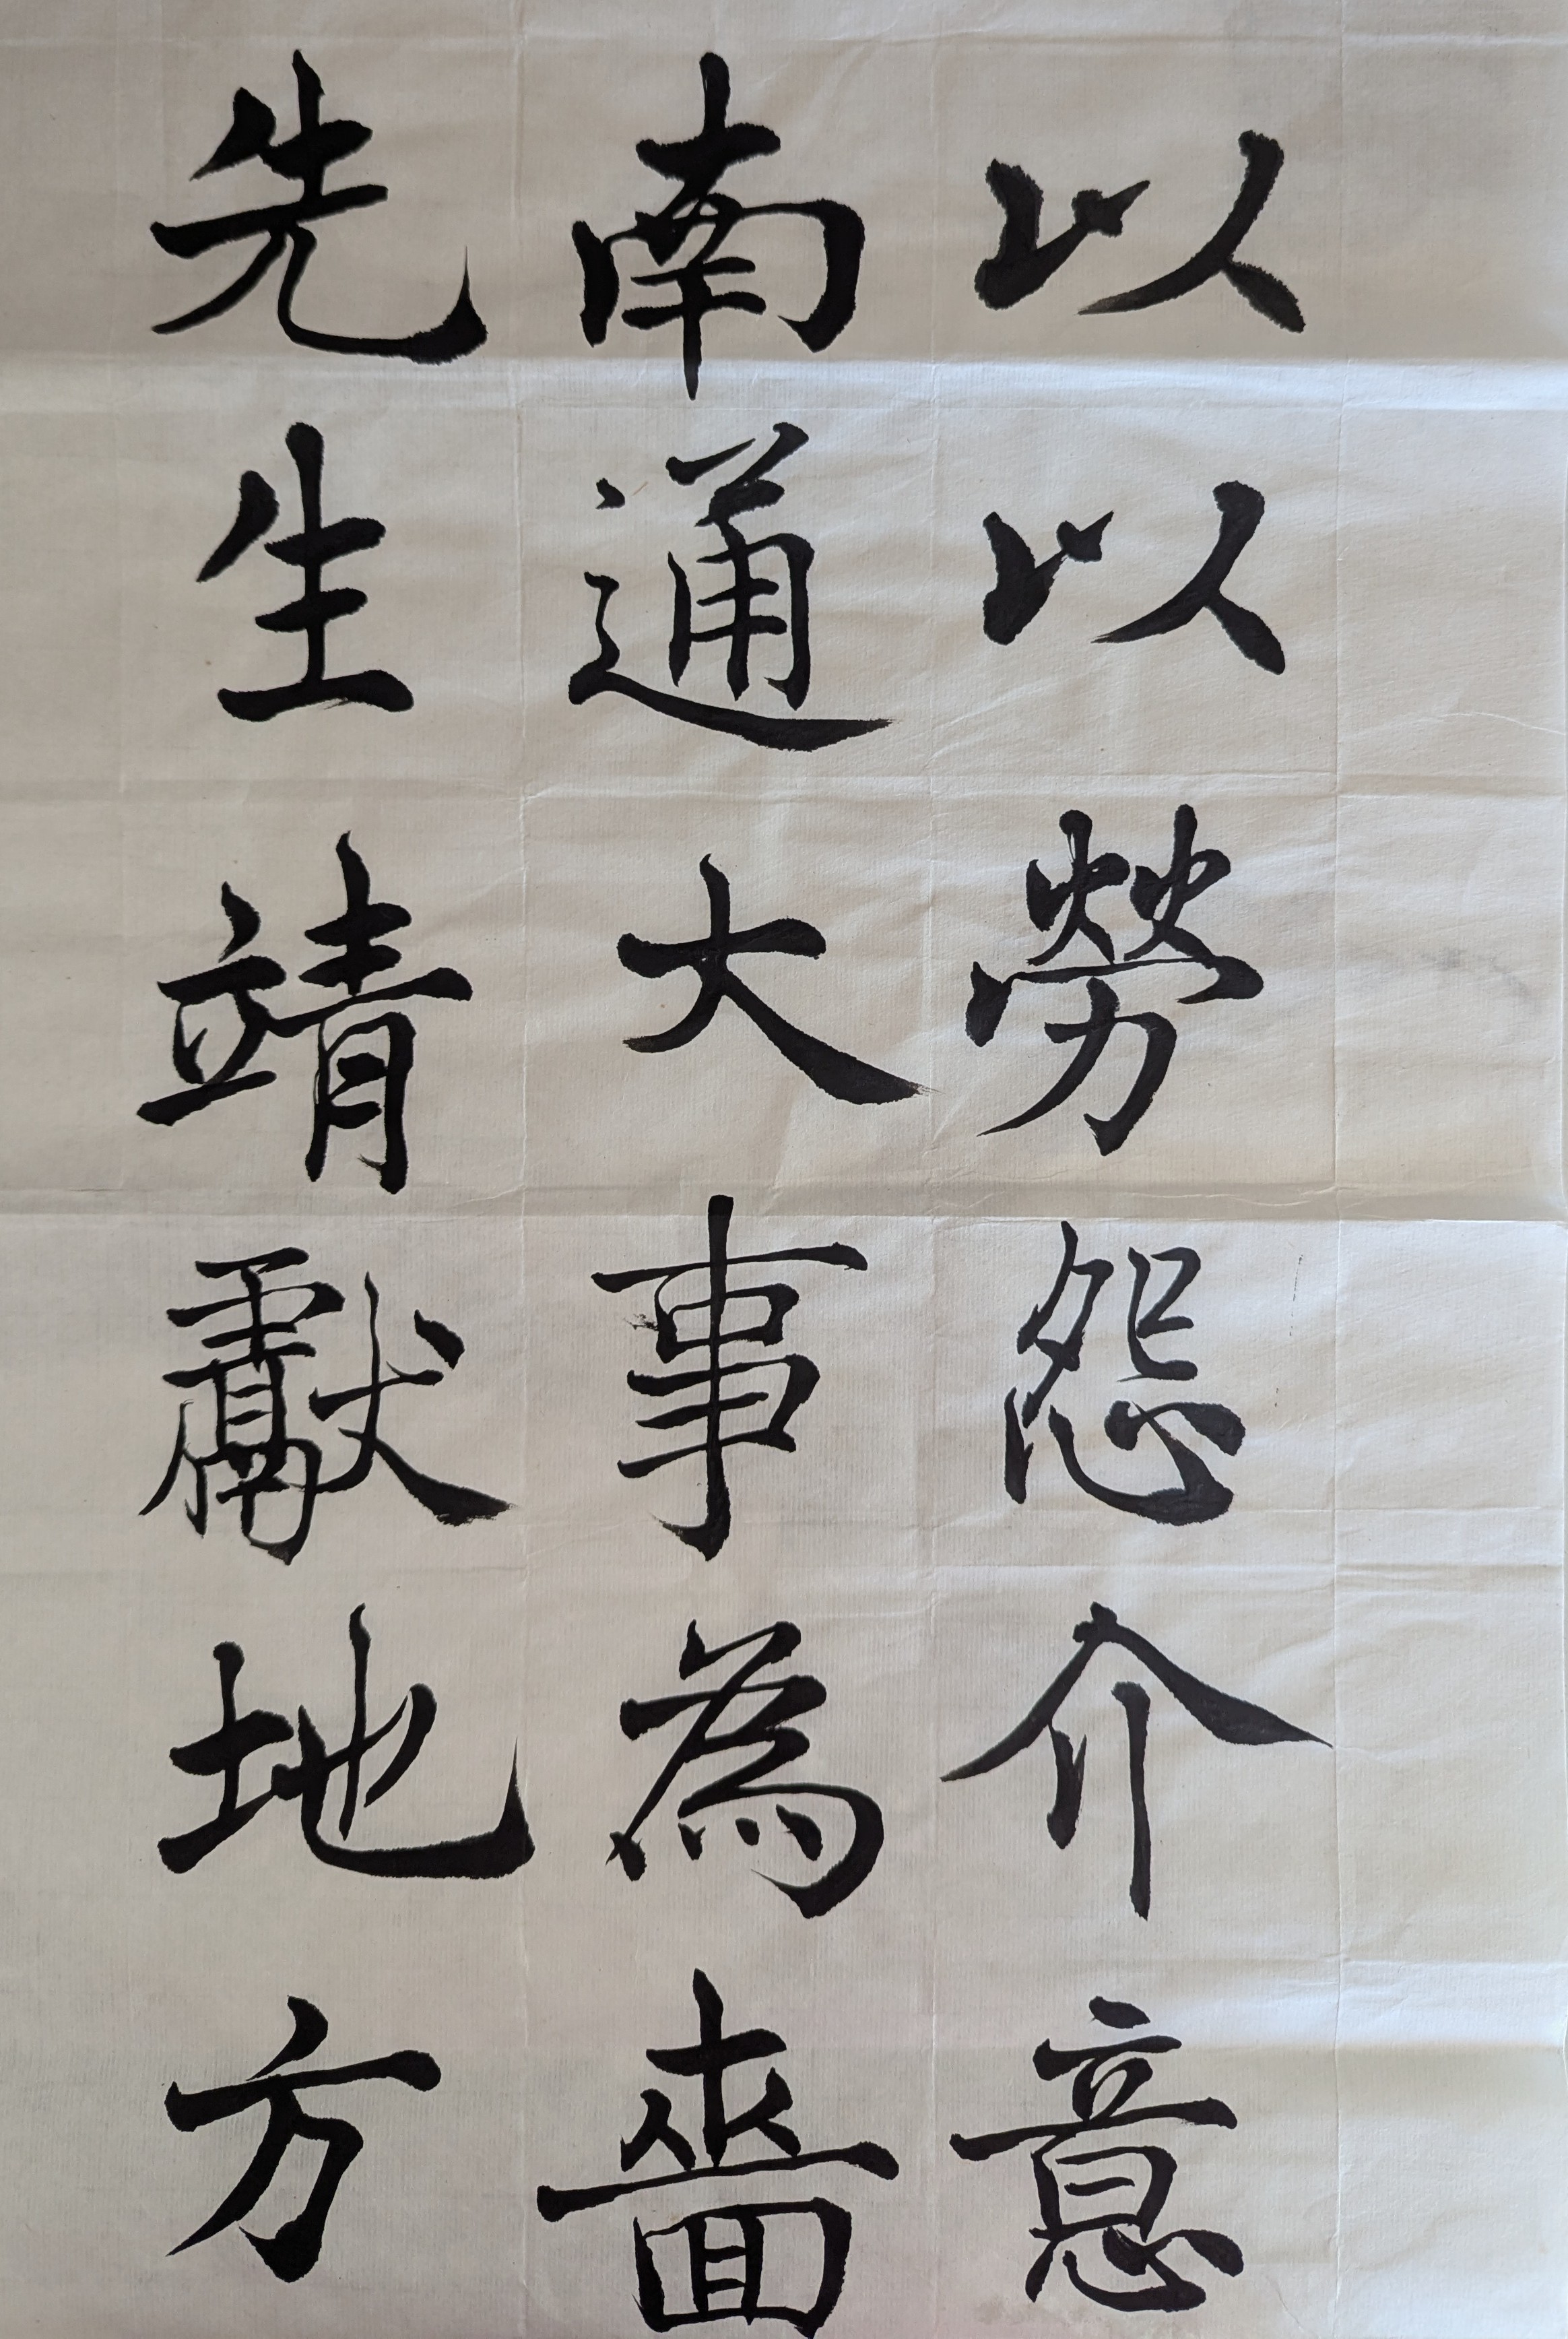 以以勞怨介意
南通大事為嗇
先生靖獻地方